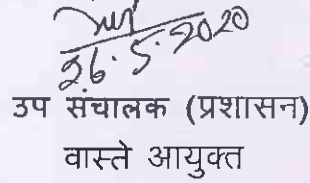 26.5.2020
उप संचालक (प्रशासन)
वास्ते आयुक्त